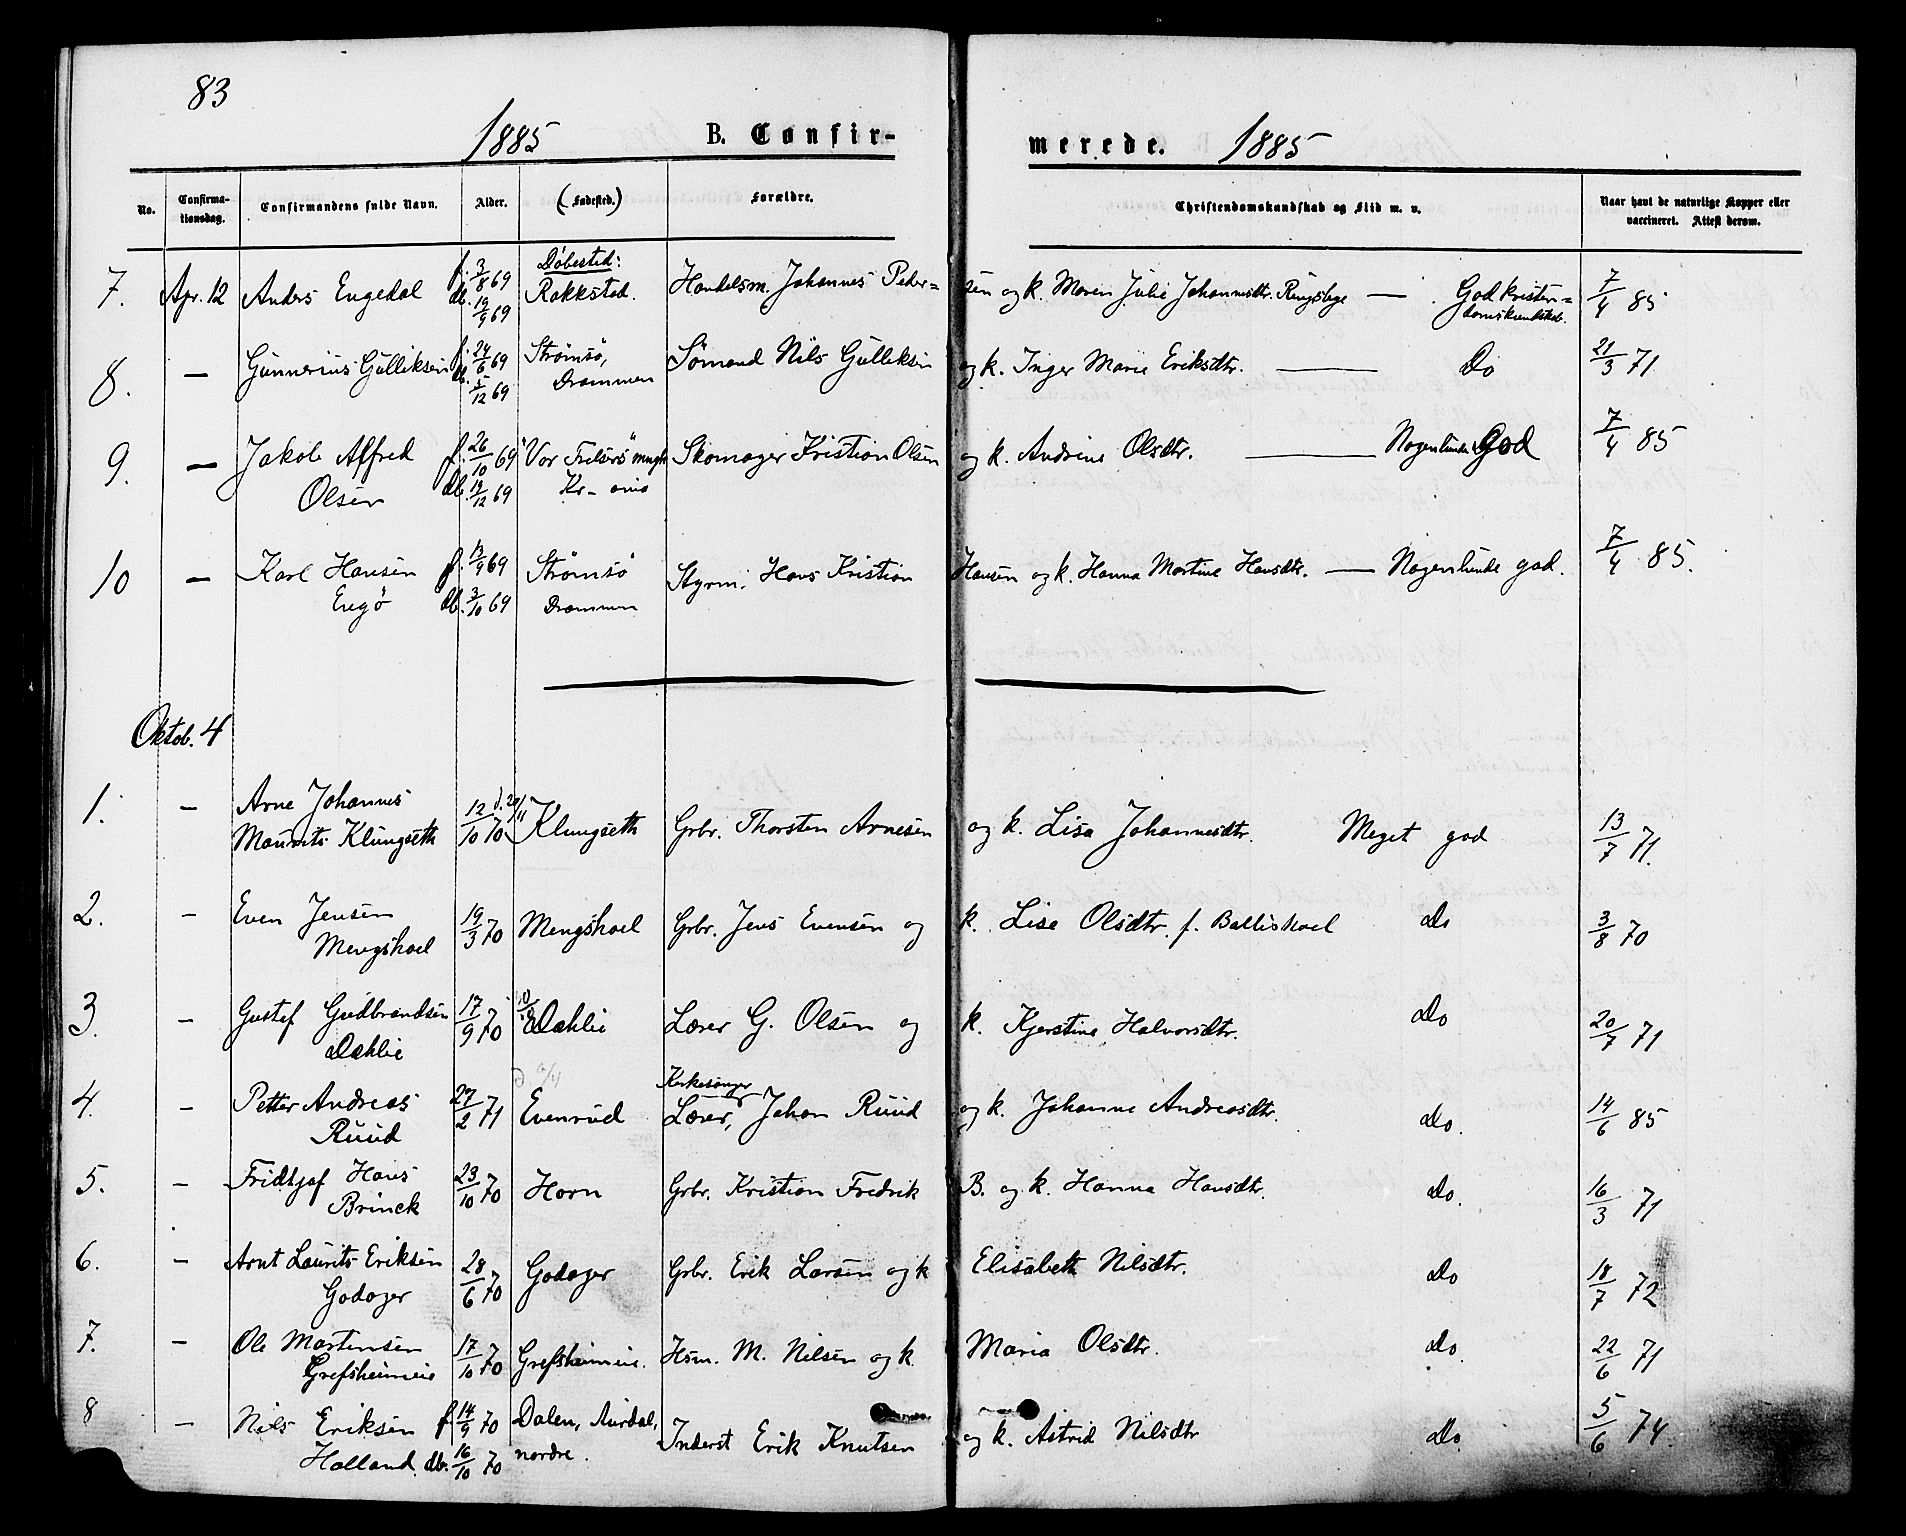 83
1885 B. Confirmerede. 1885
No. Confirmationsdag. Confirmandens fulde Navn. Alder. (Fødested.) Forældre. Christendomskundskab og Flid m. v. Naar havt de naturlige Kopper eller vaccineret. Attest derom.
Døbested:
7. Apr. 12 Anders Engedal f. 3/8 69 Rakkstad. Handelsm. Johannes Peder= sen og k. Maren Julie Johannesdtr. — God kristen= 7/4 85
db. 19/9 69 domskundskab.
8. — Gunnerius Gulliksen f. 24/6 69 Strømsø, Sømand Nils Gulliksen og k. Inger Marie Eriksdtr. — Do 21/3 71
db. 5/12 69 Drammen
9. — Jakob Alfred f. 26/10 69 "Vor Frelsers" mngh Skomager Kristian Olsen og k. Andrine Olsdtr. — Nogenlunde God 7/4 85
Olsen db. 19/12 69 Kr-ania
10 — Karl Hansen f. 13/9 69 Strømsø Styrm. Hans Kristian Hansen og k. Hanna Martine Hansdtr. — Nogenlunde god. 7/4 85.
Engø db. 3/10 69 Drammen
Oktob. 4
1. — Arne Johannes
Maurits Klungseth 12/10 70 d. 20/11 Klungseth Grbr. Thorsten Arnesen og k. Lisa Johannesdtr. Meget god 13/7 71.
2. — Even Jensen 19/3 70 Mengshoel Grbr. Jens Evensen og k. Lise Olsdtr. f. Ballishoel Do 3/8 70
Mengshoel
3. — Gustaf Gudbrandsen 17/9 70 Dæhlie Lærer G. Olsen og k. Kjerstine Halvorsdtr. Do 20/7 71
Dæhlie
Kirkesanger
4. — Petter Andreas 27/2 71 Evenrud Lærer, Johan Ruud og k. Johanne Andreasdtr. Do. 14/6 85
Ruud
5. — Fridtjof Hans 23/10 70 Horn Grbr. Kristian Fredrik B. og k. Hanna Hansdtr. Do. 16/3 71
Brinck
6. — Arnt Laurits Eriksen 28/6 70 Godager Grbr. Erik Larsen og k Elisabeth Nilsdtr. Do 18/7 72
Godager
7. — Ole Martinsen 17/10 70 Grefsheimeie. Hsm. M. Nilsen og k. Maria Olsdtr. Do. 22/6 71
Grefsheimeie
8 — Nils Eriksen f. 14/9 70 Dalen, Aurdal, Inderst Erik Knutsen og k. Astrid Nilsdtr Do. 5/6 74.
Holland. db. 16/10 70 nordre.